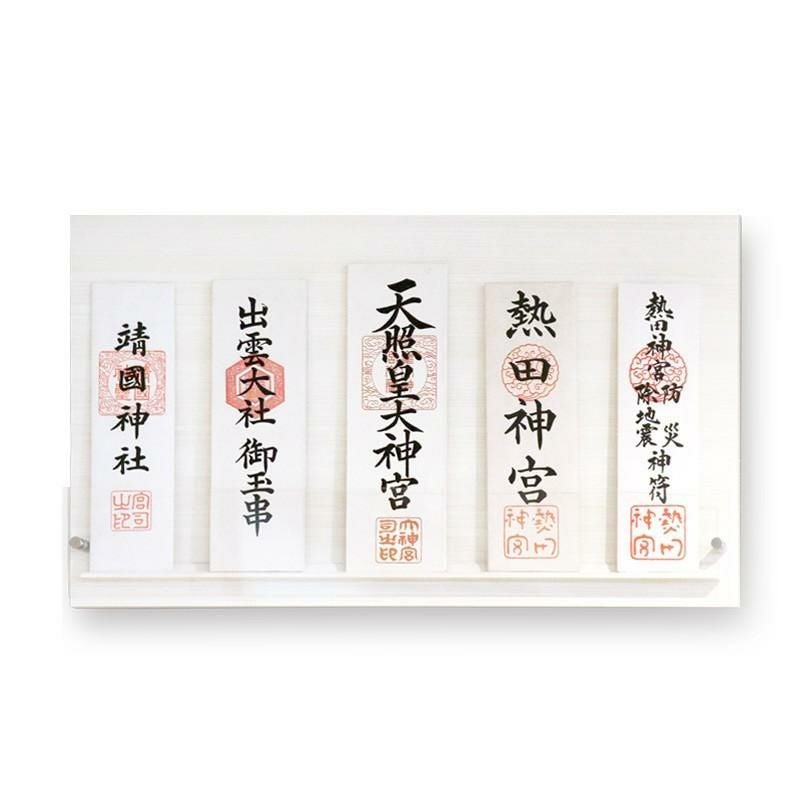 靖國神社
宮司之印
出雲大社 御玉串
天照皇大神宮
大神宮司之印
熱田神宮
熱田神宮
熱田神宮
除地震
防災
神符
熱田神宮